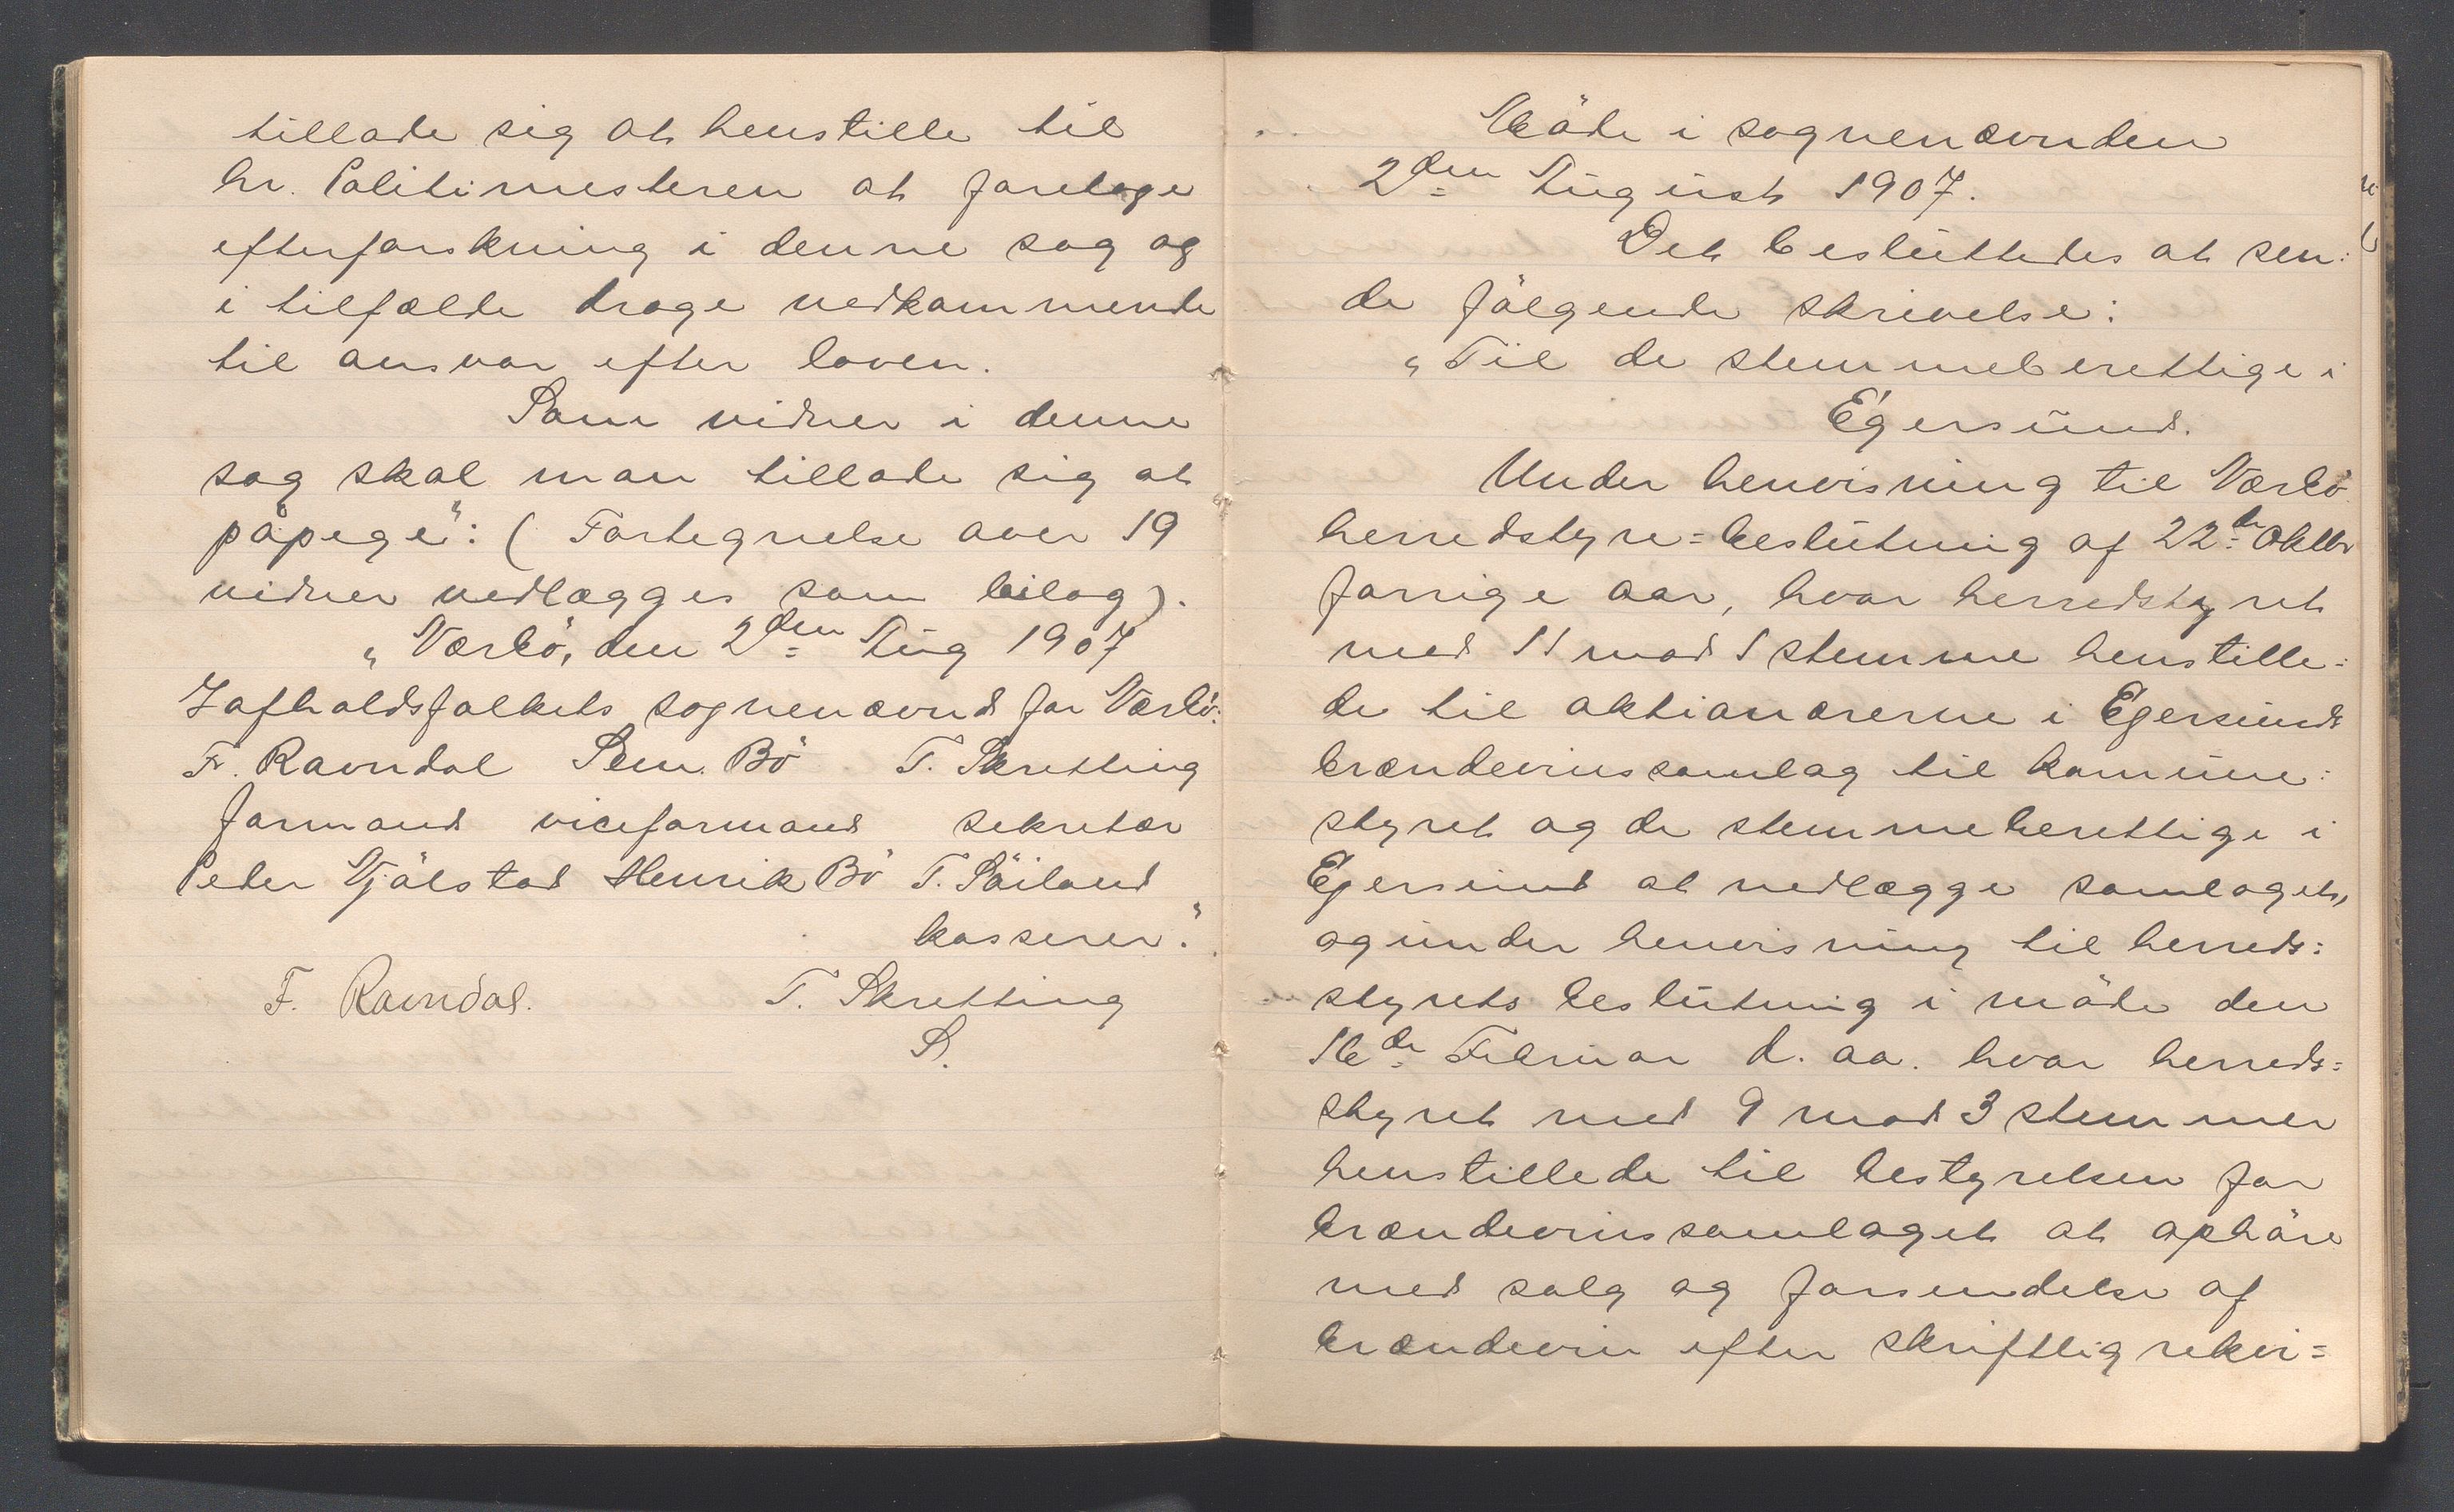 tillade sig at henstille til
hr. Politimesteren at foretage
efterforskning i denne sag og
i tilfælde drage vedkommende
til ansvar efter loven.
Som vidner i denne
sag skal man tillade sig at
påpege": (Fortegnelse over 19
vidner vedlægges som bilag).
"Varhö, den 2den Aug 1907
I afholdsfolkets sognenævnd for Varhö:
F. Ravndal Sem. Bö T. Skretting
formand viceformand sekretær
Peder Njålstad Henrik Bö T. Söiland
kasserer."
F. Ravndal. T. Skretting
S.
Möde i sognenævnden
2den August 1907.
Det besluttedes at sen:
de fölgende skrivelse:
"Til de stemmeberettige i
Egersund.
Under henvisning til Varhö
herredstyre=beslutning af 22de Oktbr
forrige aar, hvor herredstyret
med 11 mod 1 stemme henstille:
de til aktionærerne i Egersunds
brændevinssamlag til komune:
styret og de stemmeberettige i
Egersund at nedlægge samlaget,
og under henvisning til herreds:
styrets beslutning i möde den
16de Februar d. aa. hvor herreds=
styret med 9 mod 3 stemmer
henstillede til bestyrelsen for
brændevinssamlaget at ophöre
med salg og forsendelse af
brændevin efter skriftlig rekvi=